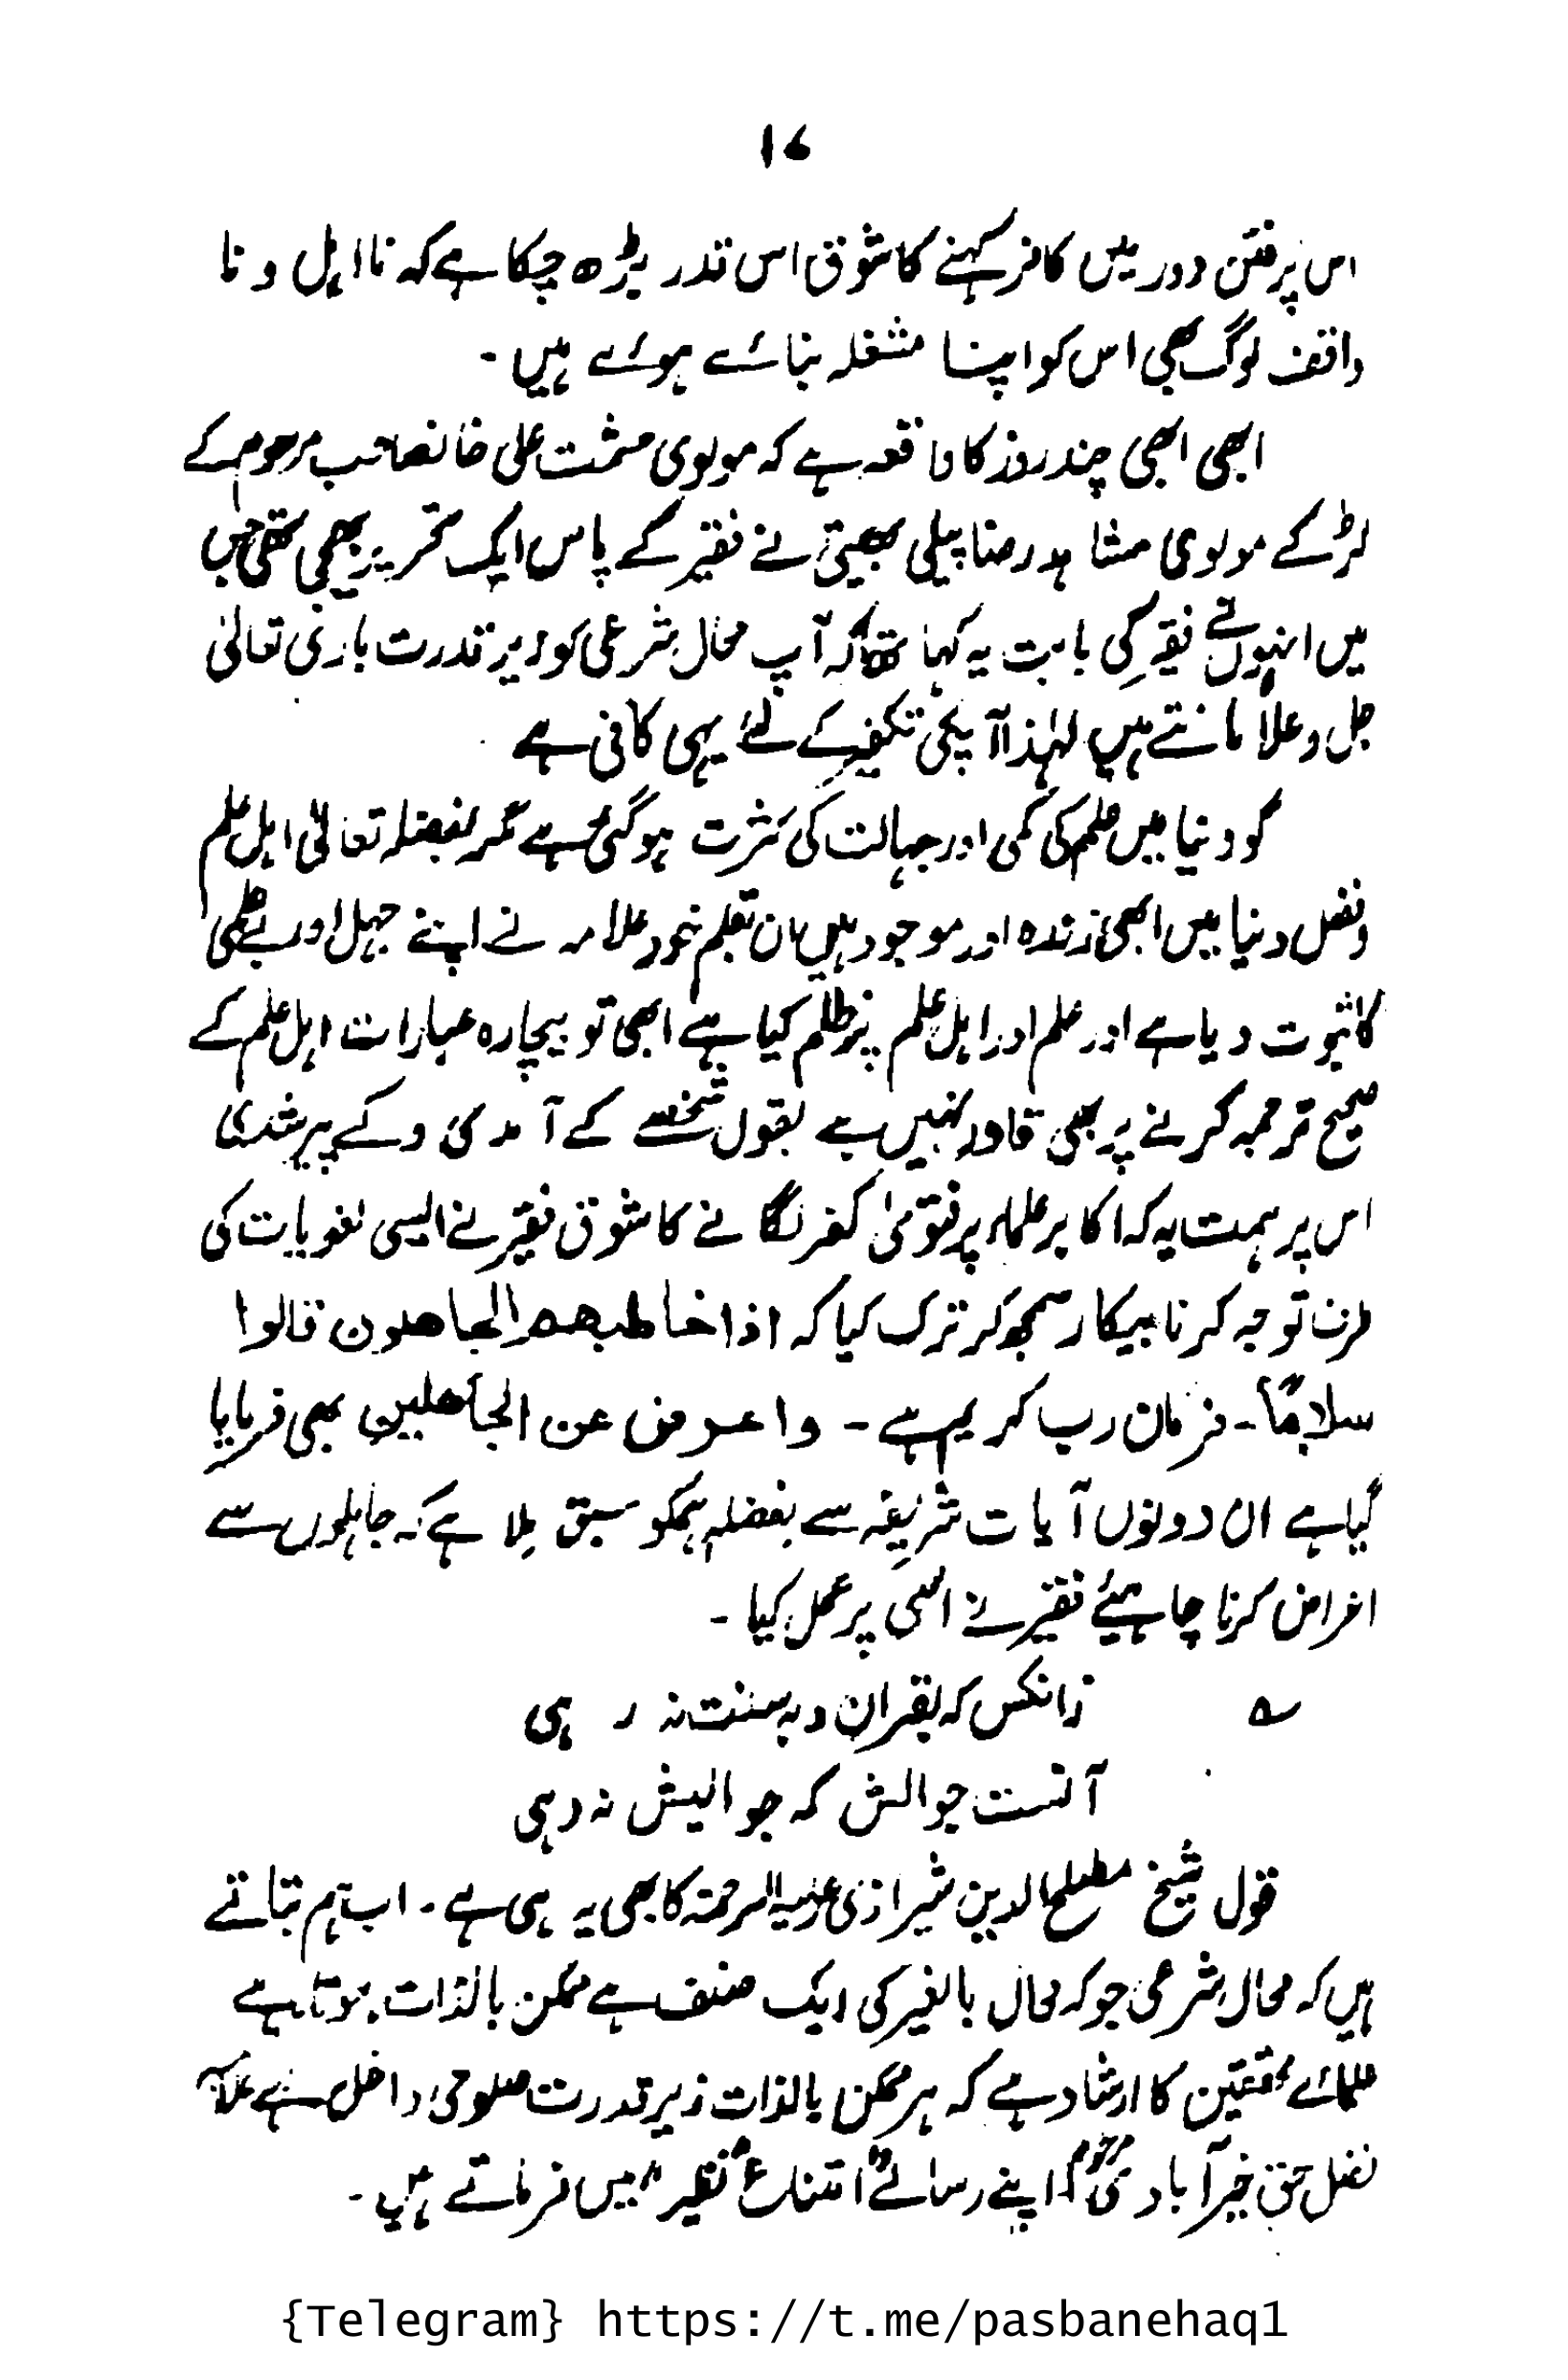 ۱۶
اس پرفتن دور میں کافر کہنے کا شوق اس قدر بڑھ چکا ہے کہ نا اہل و نا
واقف لوگ بھی اس کو اپنا مشغلہ بنائے ہوئے ہیں ۔
ابھی ابھی چند روز کا واقعہ ہے کہ مولوی حشمت علی خانصاحب مرحوم کے
لڑکے مولوی مشاہد رضا پیلی بھیتی نے فقیر کے پاس ایک تحریر بھیجی تھی جس
میں انہوں نے فقیر کی بابت یہ کہا تھا کہ آپ محال شرعی کو زیر قدرت باری تعالیٰ
جل و علا مانتے ہیں لہٰذا آپکی تکفیر کے لئے یہی کافی ہے
گو دنیا میں علم کی کمی اور جہالت کی کثرت ہو گئی ہے مگر بفضلہ تعالیٰ اہل علم
و فضل دنیا میں ابھی زندہ اور موجود ہیں ان بقلم خود علامہ نے اپنے جہل اور بے علمی
کا ثبوت دیا ہے اور علم اور اہل علم پر ظلم کیا ہے ابھی تو بیچارہ عبارات اہل علم کے
صحیح ترجمہ کرنے پر بھی قادر نہیں ہے بقول شخصے کے آمدی و کے پیر شدی
اس پر ہمت یہ کہ اکابر علماء پر فتویٰ کفر لگانے کا شوق فقیر نے ایسی لغویات کی
طرف توجہ کرنا بیکار سمجھ کر ترک کیا کہ اذا خاطبھم الجاھلون قالوا
سلاماً ۔ فرمان رب کریم ہے ۔ واعرض عن الجاھلین بھی فرمایا
گیا ہے ان دونوں آیات شریفہ سے بفضلہ ہمکو سبق ملا ہے کہ جاہلوں سے
اعراض کرنا چاہیئے فقیر نے اسی پر عمل کیا ۔
؎ زانکس کہ بقران و بہ سنت نہ ر ہی
آنست جوابش کہ جوابش نہ دہی
قول شیخ مصلح الدین شیرازی علیہ الرحمۃ کا بھی یہ ہی ہے ۔ اب ہم بتاتے
ہیں کہ محال شرعی جو کہ محال بالغیر کی ایک صنف ہے ممکن بالذات ہوتا ہے
علمائے محققین کا ارشاد ہے کہ ہر ممکن بالذات زیر قدرت صلوحی داخل ہے علامہ
فضل حق خیرآبادی مرحوم اپنے رسالے "امتناع نظیر" میں فرماتے ہیں ۔
{Telegram} https://t.me/pasbanehaq1